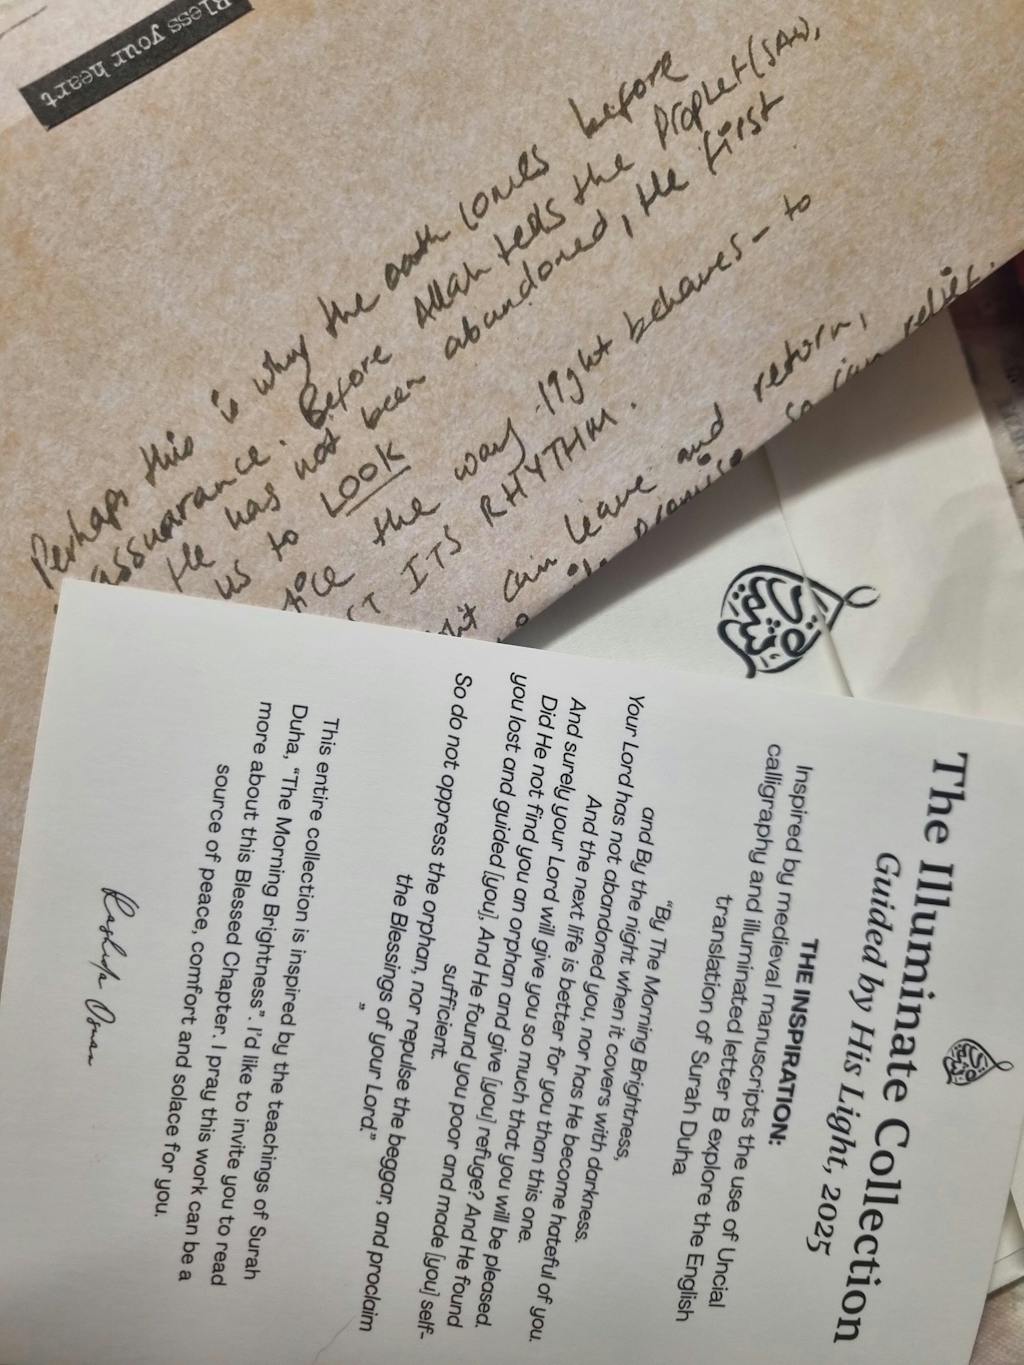 Bless your heart
Perhaps this is why the oath comes before
assuarance. Before Allah tells the Prophet (SAW,
He has not been abandoned, He first
us to LOOK
the way light behaves - to
ITS RHYTHM.
can leave and return,
so can relief.
The Illuminate Collection
Guided by His Light, 2025
THE INSPIRATION:
Inspired by medieval manuscripts the use of Uncial
calligraphy and illuminated letter B explore the English
translation of Surah Duha
"By The Morning Brightness,
and By the night when it covers with darkness,
Your Lord has not abandoned you, nor has He become hateful of you.
And the next life is better for you than this one.
And surely your Lord will give you so much that you will be pleased.
Did He not find you an orphan and give [you] refuge? And He found
you lost and guided [you], And He found you poor and made [you] self-
sufficient.
So do not oppress the orphan, nor repulse the beggar, and proclaim
the Blessings of your Lord."
"
This entire collection is inspired by the teachings of Surah
Duha, "The Morning Brightness". I'd like to invite you to read
more about this Blessed Chapter. I pray this work can be a
source of peace, comfort and solace for you.